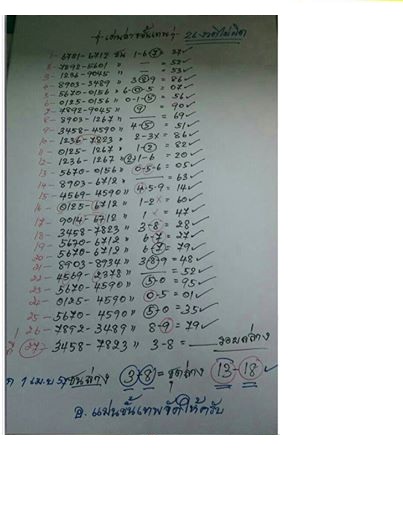 26 งวดไม่ผิด
1- 6701-6712 ชน 1-6-7 = 27 ✓
2- 7892-5601 " — = 52 ✓
3- 1236-9045 " — = 53 ✓
4- 8903-3489 " 3-8-9 = 86 ✓
5- 5670-0156 " 6-0-5 = 07 ✓
6- 0125-0156 " 0-1-5 = 56 ✓
7- 7892-9045 " 9 = 90 ✓
8- 8903-1267 " — = 69 ✓
9- 3458-4590 " 4-5 = 51 ✓
10- 1236-7823 " 2-3x = 86 ✓
11- 0125-1267 " 1-2 = 82 ✓
12- 1236-1267 " 2-1-6 = 20 ✓
13- 5670-0156 " 0-5-6 = 05 ✓
14- 8903-6712 " — = 63 ✓
15- 4569-4590 " 4-5-9 = 14 ✓
16- 0125-6712 " 1-2x = 60 ✓
17- 9014-6712 " 1 = 47 ✓
18- 3458-7823 " 3-8 = 28 ✓
19- 5670-6712 " 6-7 = 27 ✓
20- 5670-6712 " 6-7 = 79 ✓
21- 8903-8934 " 3-8-9 = 48 ✓
22- 4569-2378 " — = 52 ✓
23- 5670-4590 " 5-0 = 95 ✓
24- 0125-4590 " 0-5 = 01 ✓
25- 5670-4590 " 5-0 = 35 ✓
26- 7892-3489 " 8-9 = 79 ✓
27- 3458-7823 " 3-8 = ___ รอบล่าง
1 เม.ย 57 ชนล่าง 3-8 = ชุดล่าง 13-18 ✓
อ. แม่นขั้นเทพจัดให้ครับ